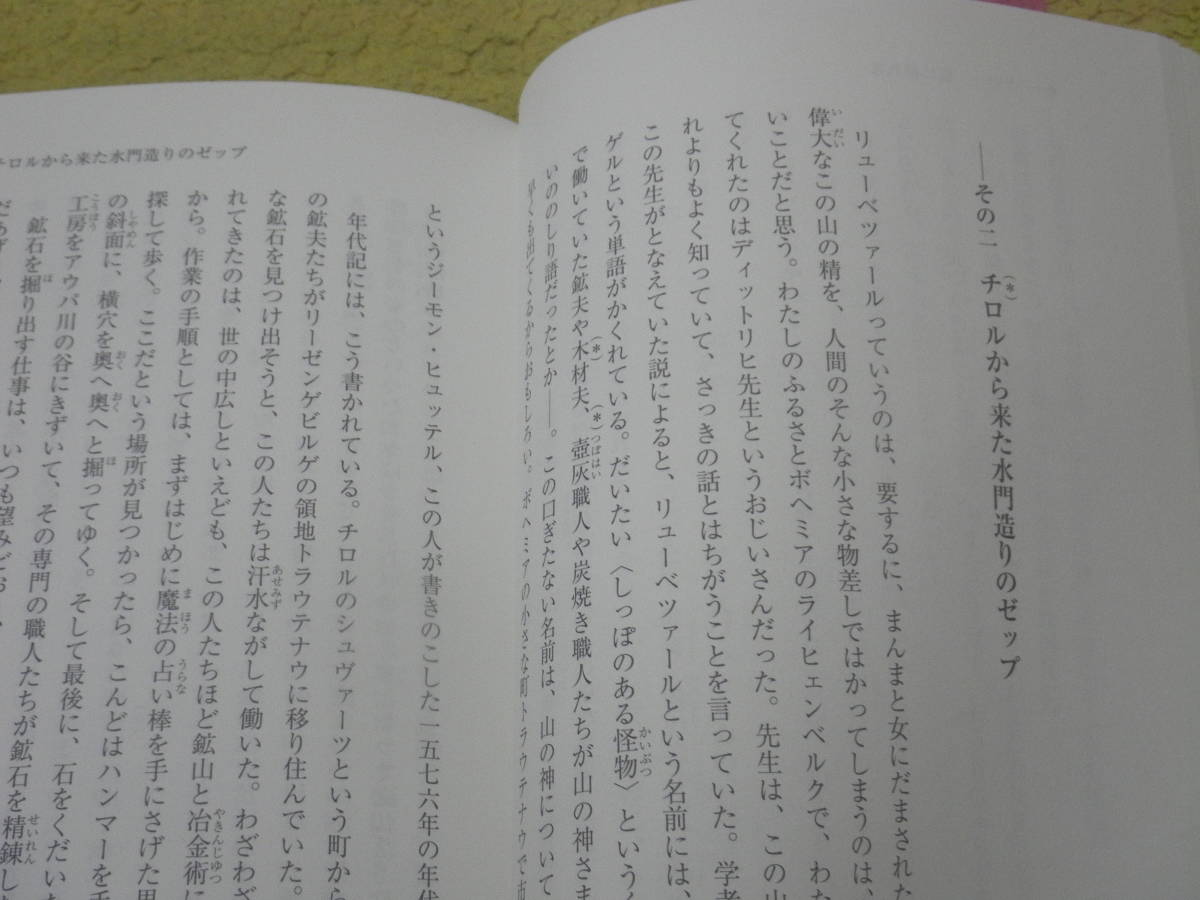 ――その二　チロルから来た水門造りのゼップ
リューベツァールっていうのは、要するに、まんまと女にだまされた
偉大なこの山の精を、人間のそんな小さな物差しではかってしまうのは、
いことだと思う。わたしのふるさとボヘミアのライヒェンベルクで、わた
てくれたのはディットリヒ先生というおじいさんだった。先生は、この山
れよりもよく知っていて、さっきの話とはちがうことを言っていた。学者
この先生がとなえていた説によると、リューベツァールという名前には、
ゲルという単語がかくれている。だいたい〈しっぽのある怪物〉という
で働いていた鉱夫や木材夫、壺灰職人や炭焼き職人たちが山の神さま
いののしり語だったとか――。この口ぎたない名前は、山の神について
早くも出てくるからおもしろい。ボヘミアの小さな町トラウテナウで
チロルから来た水門造りのゼップ
というジーモン・ヒュッテル、この人が書きのこした一五七六年の年代
年代記には、こう書かれている。チロルのシュヴァーツという町から
の鉱夫たちがリーゼンゲビルゲの領地トラウテナウに移り住んでいた。
な鉱石を見つけ出そうと、この人たちは汗水ながして働いた。わざわざ
れてきたのは、世の中広しといえども、この人たちほど鉱山と冶金術に
から。作業の手順としては、まずはじめに魔法の占い棒を手にさげた男
探して歩く。ここだという場所が見つかったら、こんどはハンマーを手
の斜面に、横穴を奥へ奥へと掘ってゆく。そして最後に、石をくだいた
工房をアウパ川の谷にきずいて、その専門の職人たちが鉱石を精錬し
鉱石を掘り出す仕事は、いつも望みどお
だあげ